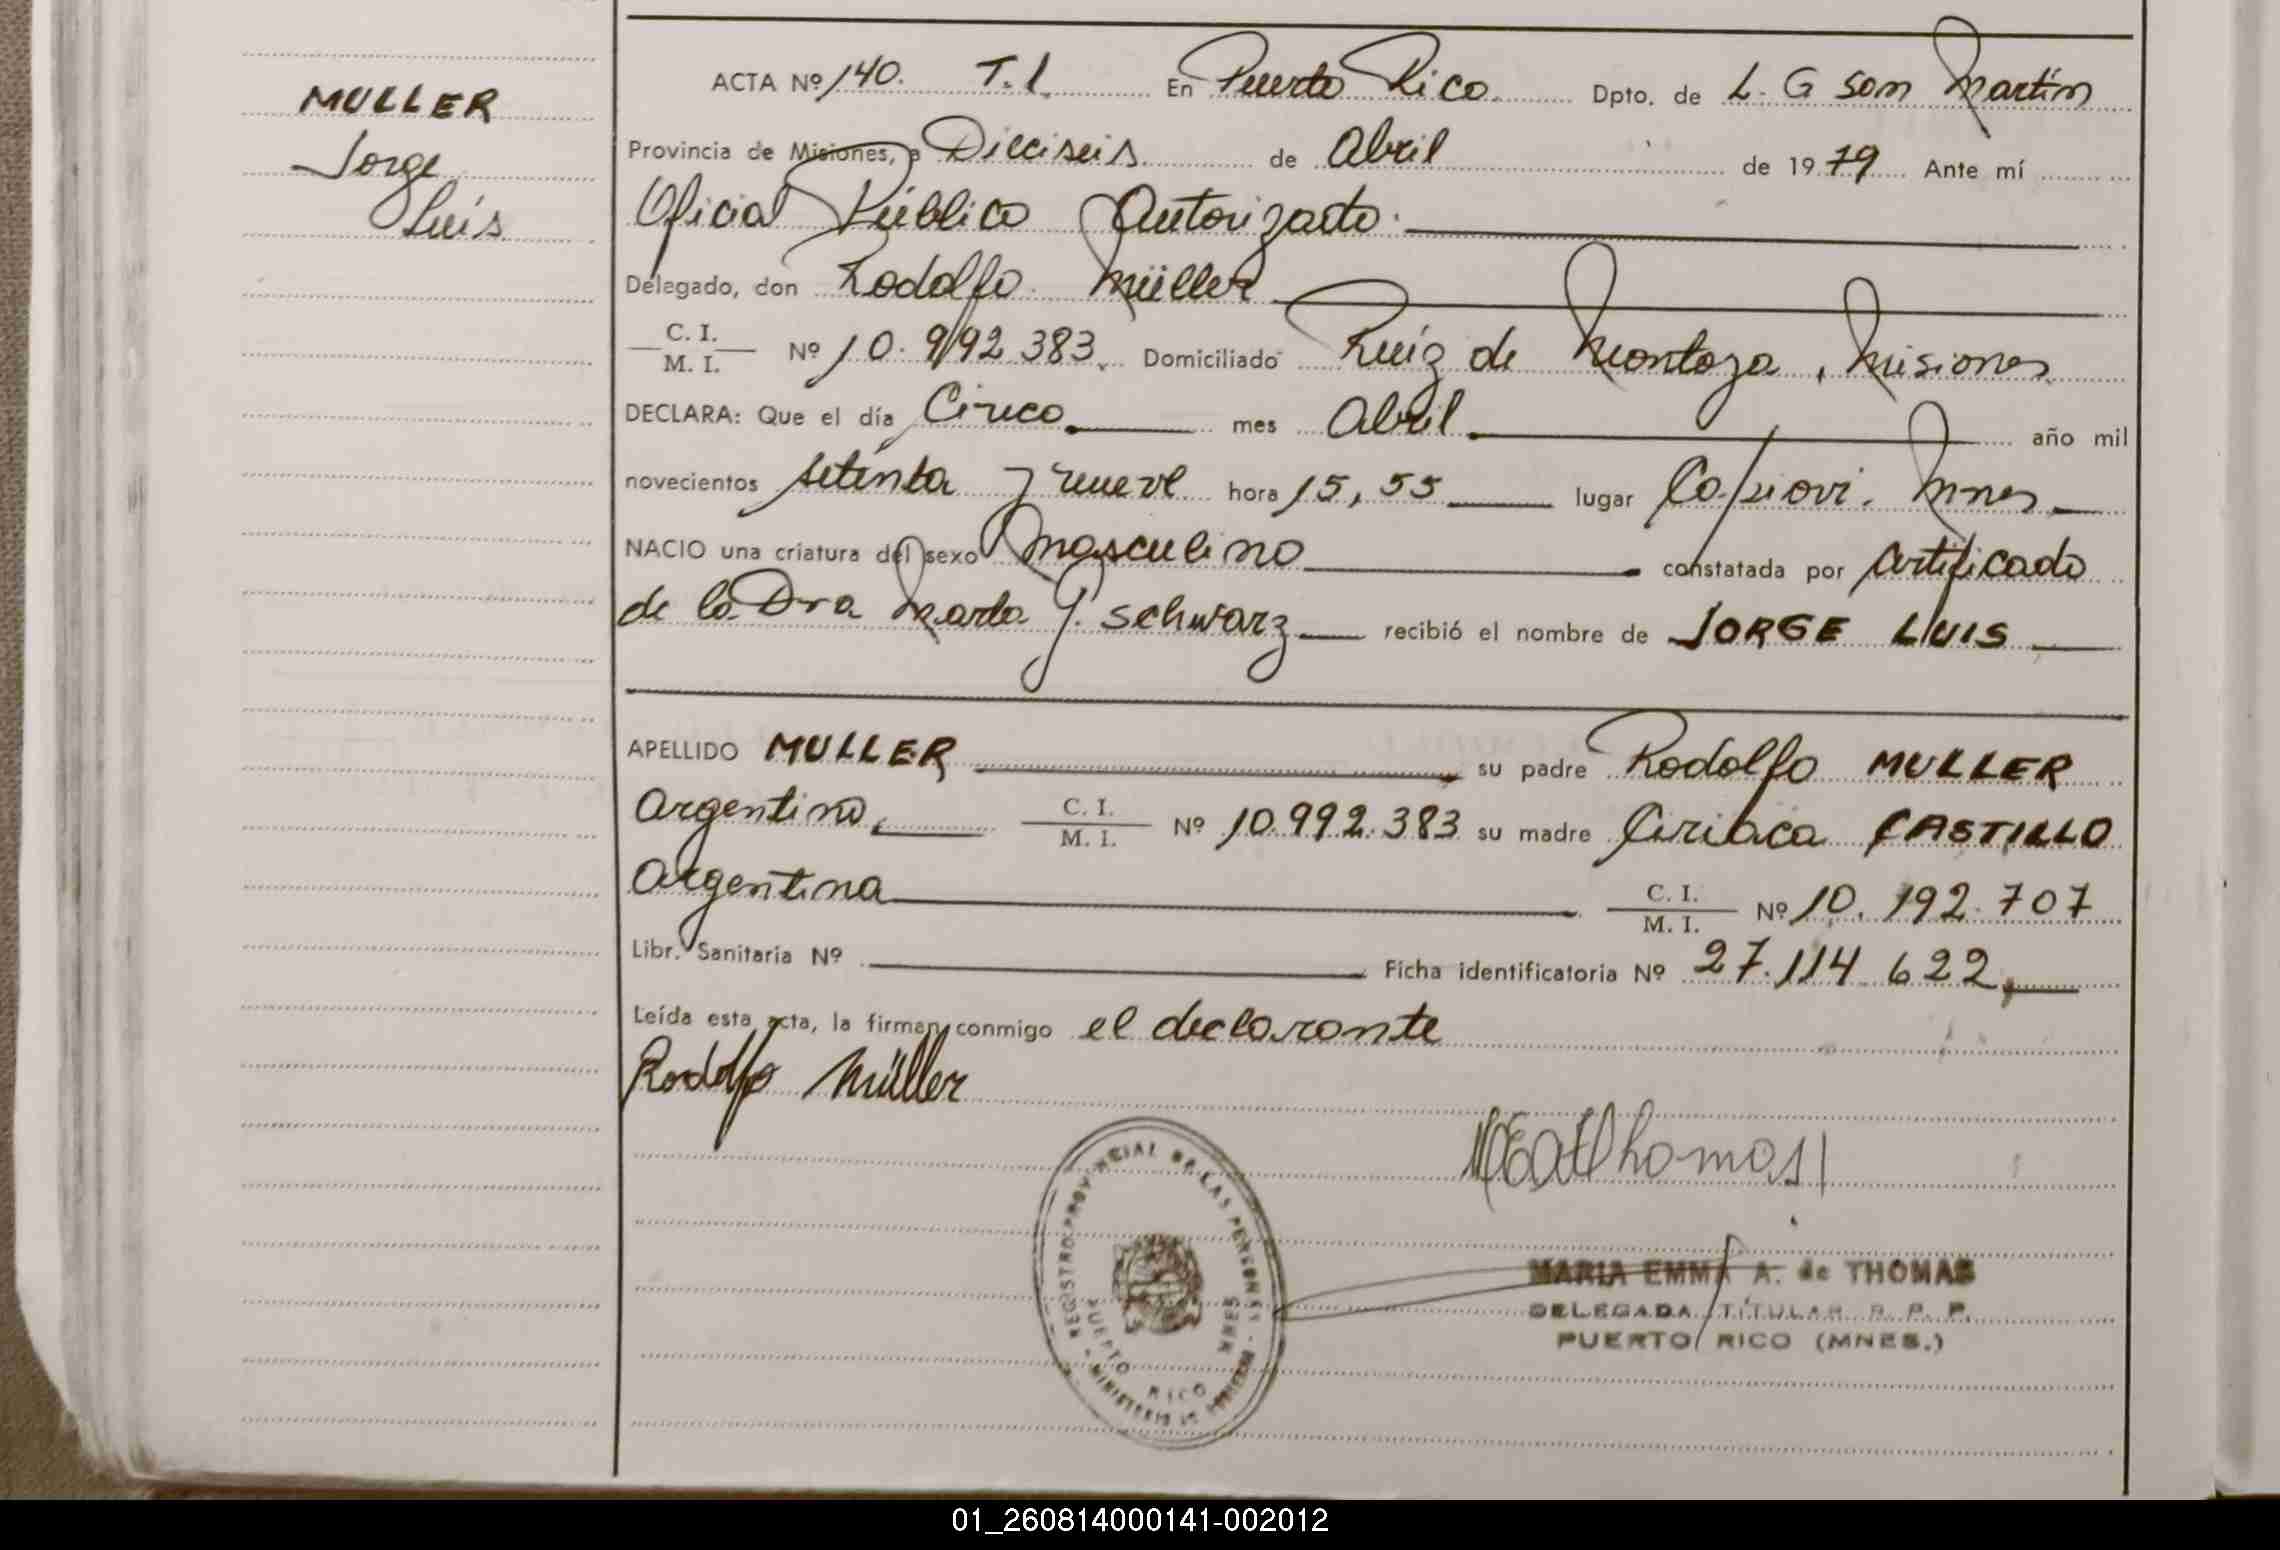 MULLER
Jorge
Luis
ACTA Nº 140. T.1. En Puerto Rico. Dpto. de L. G San Martín
Provincia de Misiones, a Dieciseis de Abril de 1979 Ante mí
Oficial Público Autorizado.
Delegado, don Rodolfo Müller
C. I.
M. I. Nº 10.992.383. Domiciliado Ruíz de Montoya, Misiones
DECLARA: Que el día Cinco mes Abril año mil
novecientos setenta y nueve hora 15,55 lugar Capiovi. Mnes
NACIO una criatura del sexo masculino constatada por certificado
de la Dra Marta G. Schwarz recibió el nombre de JORGE LUIS
APELLIDO MULLER su padre Rodolfo MULLER
Argentino, C. I.
M. I. Nº 10.992.383 su madre Ciriaca CASTILLO
Argentina C. I.
M. I. Nº 10.192.707
Libr. Sanitaria Nº Ficha identificatoria Nº 27.114.622,
Leída esta acta, la firman conmigo el declarante
Rodolfo Müller
MEAThomas
REGISTRO PROVINCIAL DE LAS PERSONAS
PUERTO RICO MNES
MINISTERIO DE
MARIA EMMA A. de THOMAS
DELEGADA TITULAR R. P. P.
PUERTO RICO (MNES.)
01_260814000141-002012